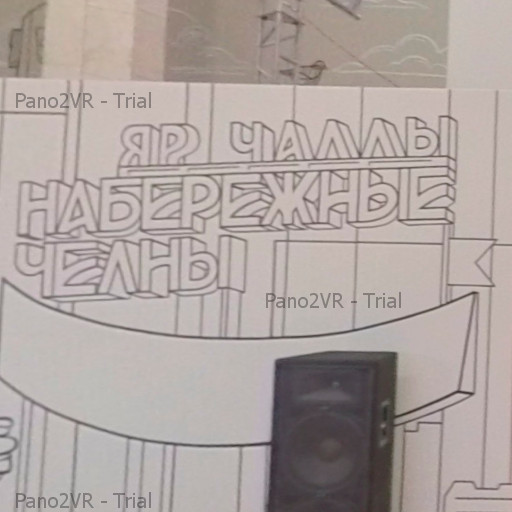 Pano2VR - Trial
ЯР ЧАЛЛЫ
НАБЕРЕЖНЫЕ
ЧЕЛНЫ
Pano2VR - Trial
Pano2VR - Trial